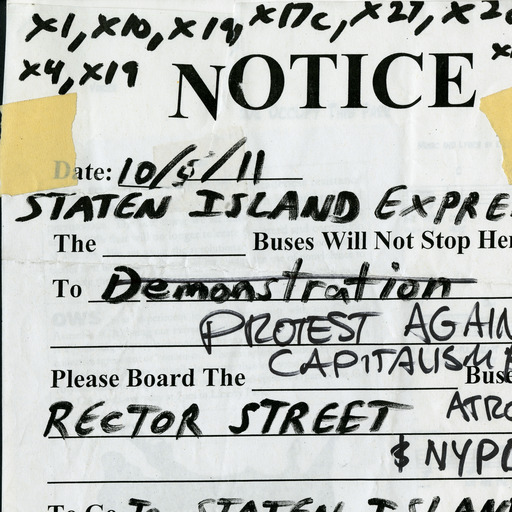 x1, x10, x19, x17c, x27, x2
x4, x19
NOTICE
Date: 10/5/11
STATEN ISLAND EXPRE
The ____________ Buses Will Not Stop Her
To Demonstration
PROTEST AGAIN
CAPITALISM
Please Board The ____________ Buse
RECTOR STREET ATRO
$ NYPD
To Go To STATEN ISLAN